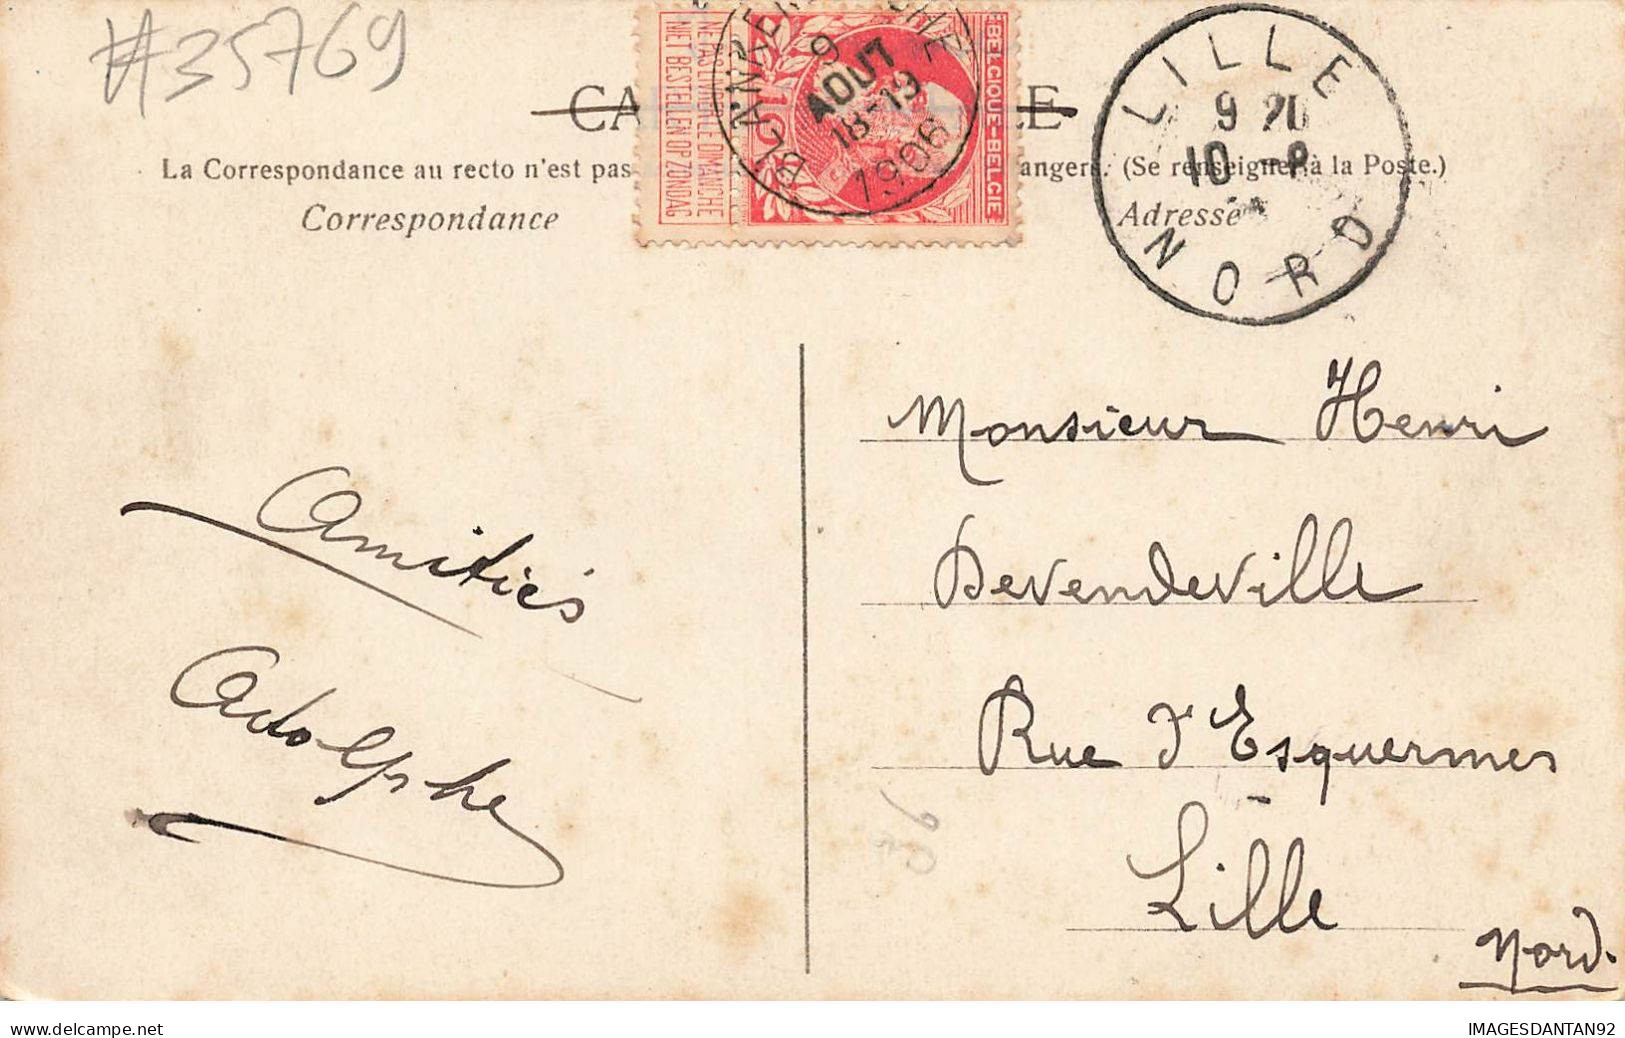 #35769
CA LE
La Correspondance au recto n'est pas angers. (Se renseigner à la Poste.)
Correspondance
Adresse
NE PAS LIVRER LE DIMANCHE
NIET BESTELLEN OP ZONDAG
BELGIQUE-BELGIE
10
9
AOUT
18-19
1906
LILLE
9 20
10 -8
NORD
Monsieur Henri
Devendeville
Rue d'Esquermes
Lille
Nord.
Amitiés
Adolphe
IMAGESDANTAN92